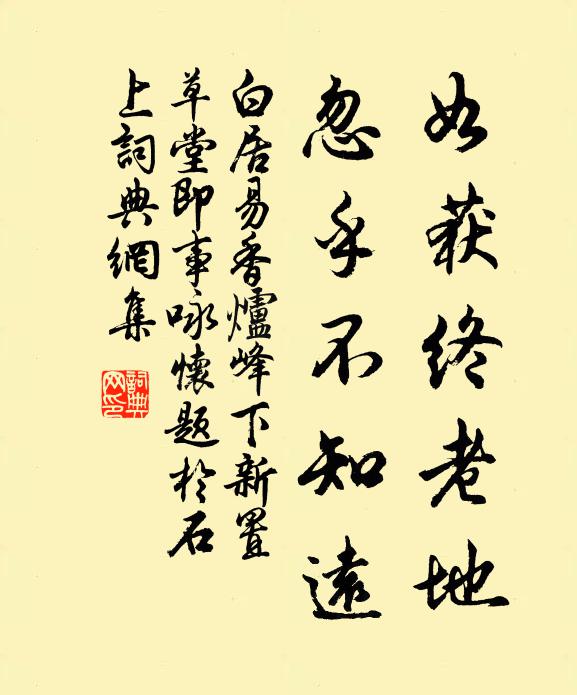 如获终老地
忽乎不知遠
白居易香爐峰下新置
草堂即事咏懷題於石
上詞典網集
詞典
网印